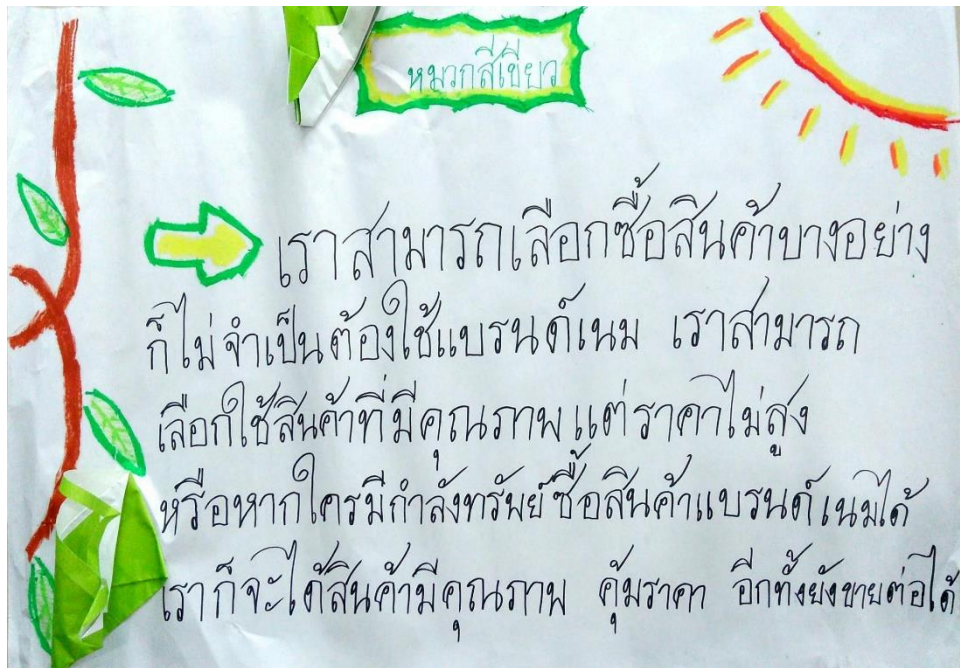 หมวกสีเขียว
เราสามารถเลือกซื้อสินค้าบางอย่าง
ก็ไม่จำเป็นต้องใช้แบรนด์เนม เราสามารถ
เลือกใช้สินค้าที่มีคุณภาพ แต่ราคาไม่สูง
หรือหากใครมีกำลังทรัพย์ซื้อสินค้าแบรนด์เนมได้
เราก็จะได้สินค้ามีคุณภาพ คุ้มราคา อีกทั้งยังขายต่อได้